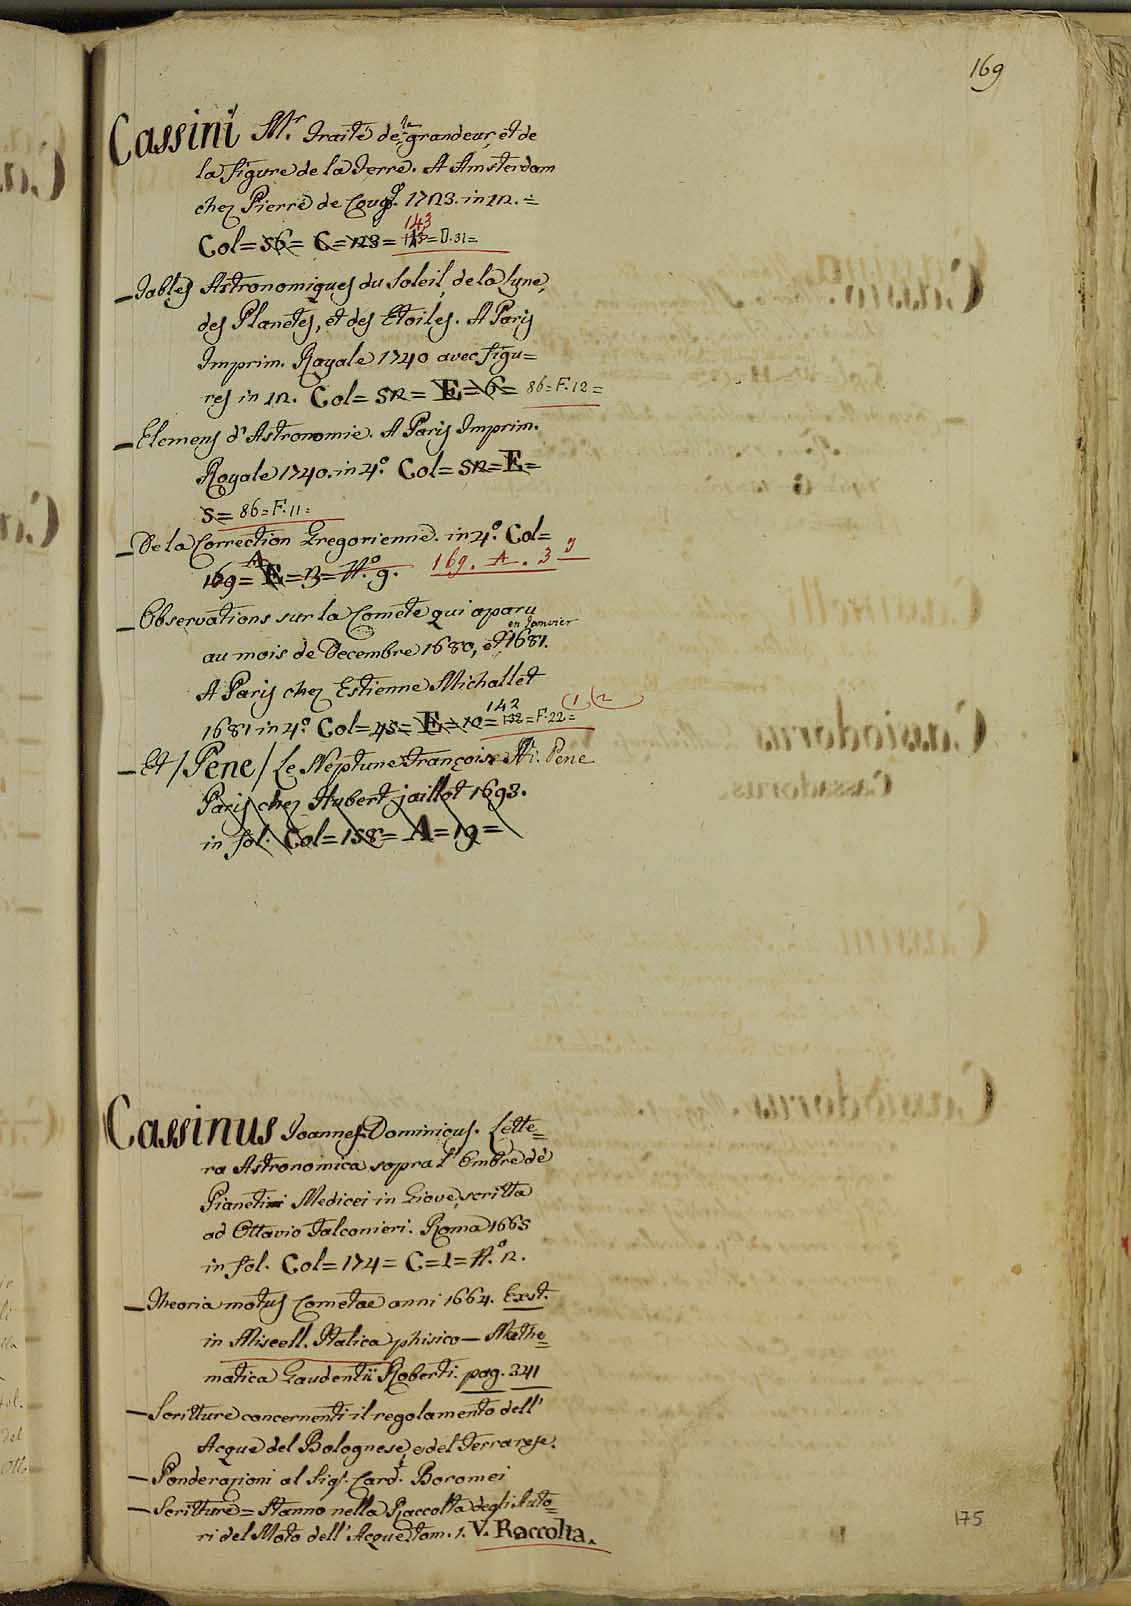 169
Cassini Mr. Traité de la grandeur, et de
la figure de la Terre. A Amsterdam
chez Pierre de 1723. in 12. =
Col= 56= C= 23= 143 = D. 31=
— Tables Astronomiques du Soleil, de la Lune,
des Planetes, et des Etoiles. A Paris
Imprim. Royale 1740 avec figu=
res in 12. Col= 52= E= 6= 86= F. 12=
— Elemens d'Astronomie. A Paris Imprim.
Royale 1740. in 4.º Col= 52= E=
5= 86= F. 11=
— De la Correction Gregorienne. in 4.º Col=
169= E= A = 3= N.º 9. 169. A. 3 9
— Observations sur la Comete qui a paru
au mois de Decembre 1680, et en Janvier 1681.
A Paris chez Estienne Michallet
1681 in 4.º Col= 45= E= 10= 142 132= F. 22= 1 2
— Et / Pene / Le Neptune François Vi. Pene
Paris chez Hubert jaillot 1693.
in fol. Col= 158= A= 19=
Cassinus Joannes Dominicus. Lette=
ra Astronomica sopra l'Ombre dè
Pianetini Medicei in Giove, scritta
ad Ottavio Falconieri. Roma 1665
in fol. Col= 174= C= 1= N.º 2.
— Theoria motus Cometae anni 1664. Exst.
in Miscell. Italica phisico— Mathe=
matica Gaudentii Roberti. pag. 341
— Scritture concernenti il regolamento dell'
Acque del Bolognese, e del Ferrarese.
— Ponderazioni al Sig.r Card. Boromei
— Scritture= Stanno nella Raccolta degli Auto=
ri del Moto dell'Acque tom. 1. V. Raccolta.
175